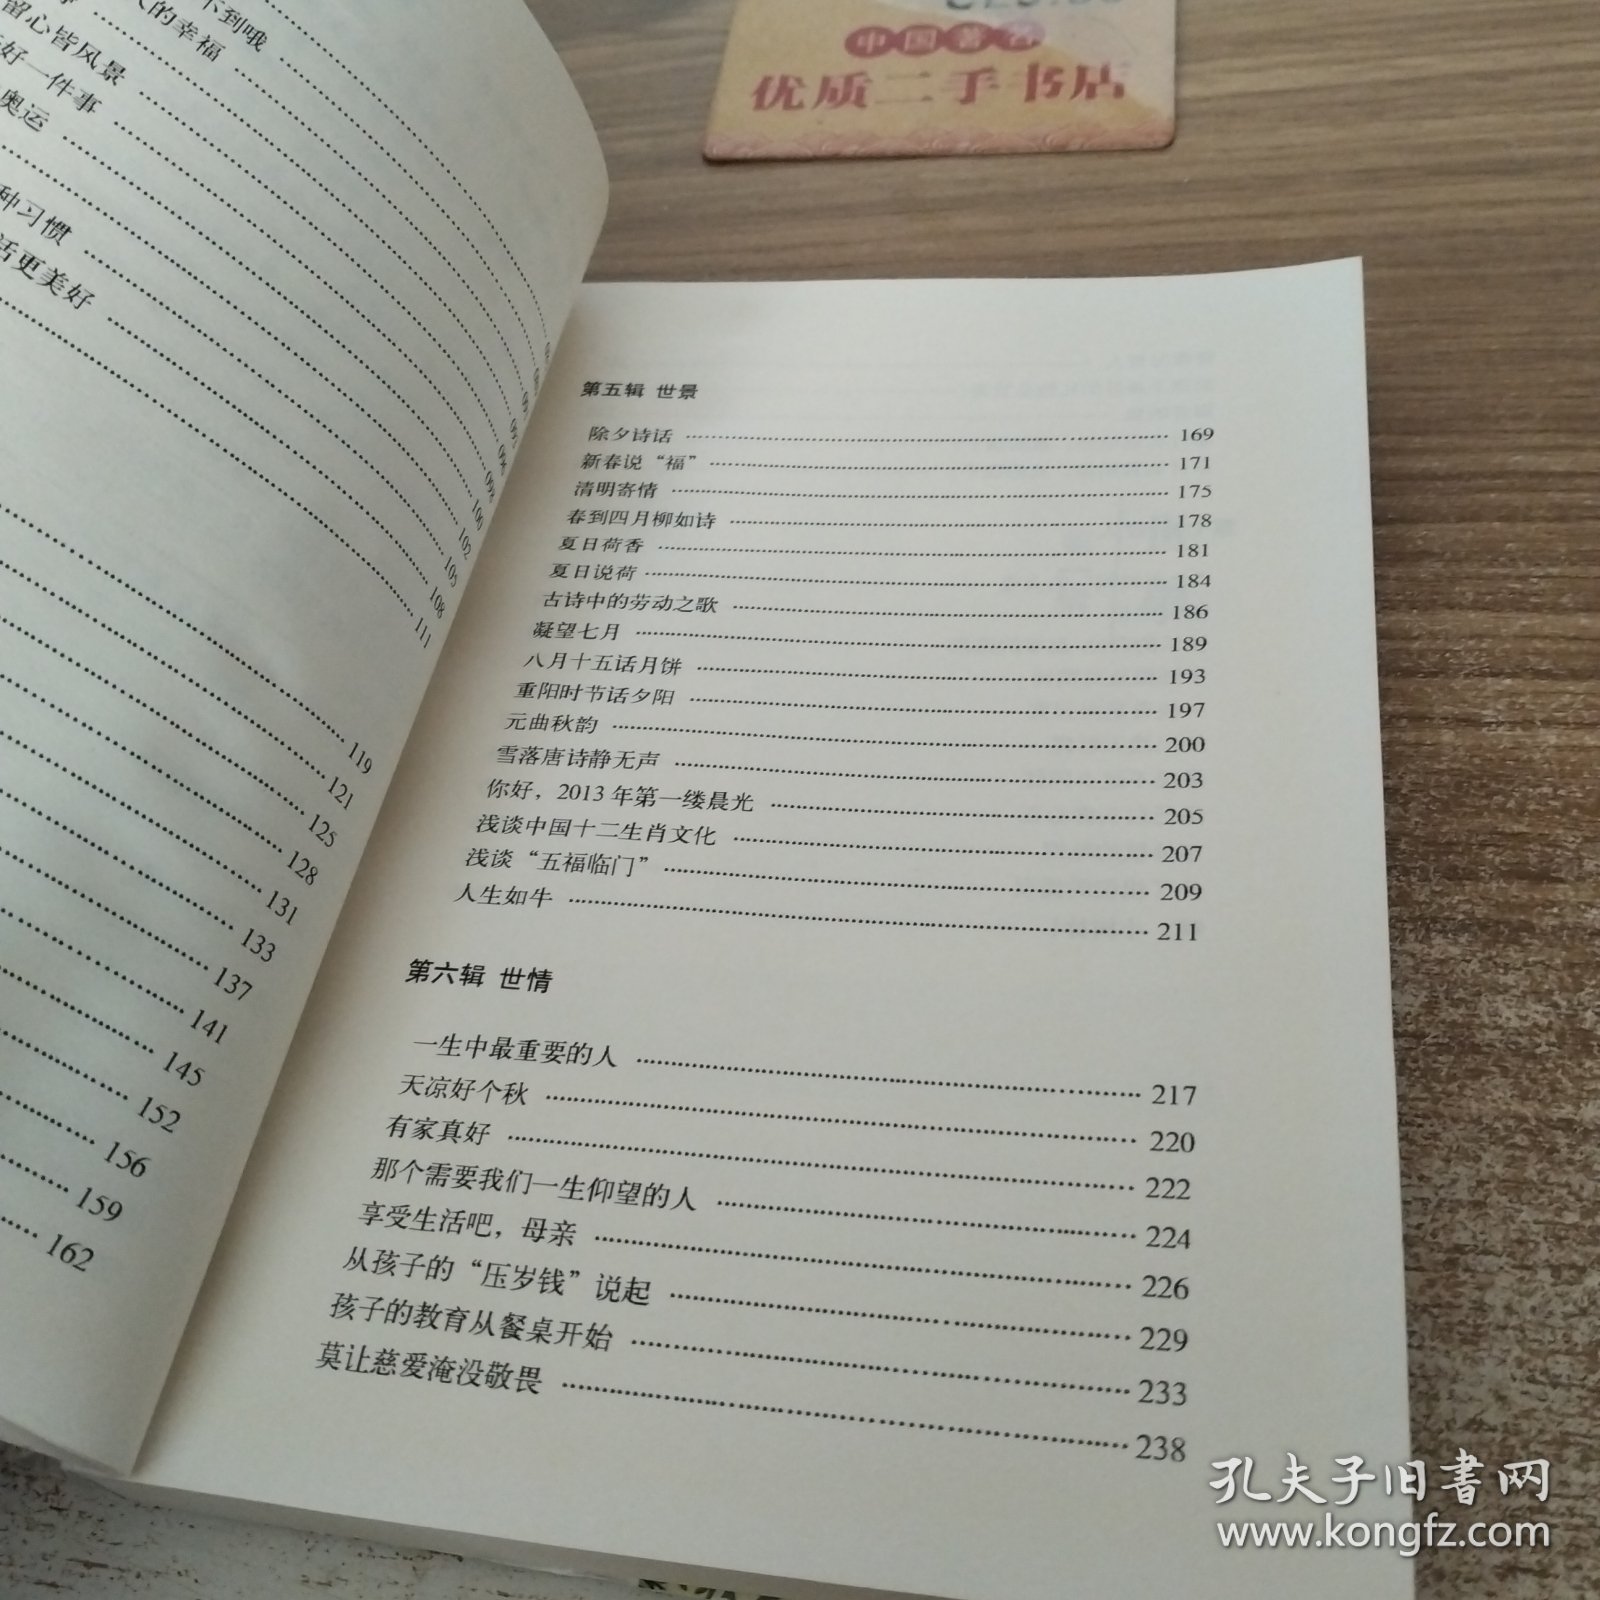 不到哦
的幸福
留心皆风景
好一件事
奥运
种习惯
活更美好
098
100
102
105
108
111
119
121
125
128
131
133
137
141
145
152
156
159
162
优质二手书店
第五辑 世景
除夕诗话 169
新春说“福” 171
清明寄情 175
春到四月柳如诗 178
夏日荷香 181
夏日说荷 184
古诗中的劳动之歌 186
凝望七月 189
八月十五话月饼 193
重阳时节话夕阳 197
元曲秋韵 200
雪落唐诗静无声 203
你好，2013年第一缕晨光 205
浅谈中国十二生肖文化 207
浅谈“五福临门” 209
人生如牛 211
第六辑 世情
一生中最重要的人 217
天凉好个秋 220
有家真好 222
那个需要我们一生仰望的人 224
享受生活吧，母亲 226
从孩子的“压岁钱”说起 229
孩子的教育从餐桌开始 233
莫让慈爱淹没敬畏 238
孔夫子旧书网
www.kongfz.com